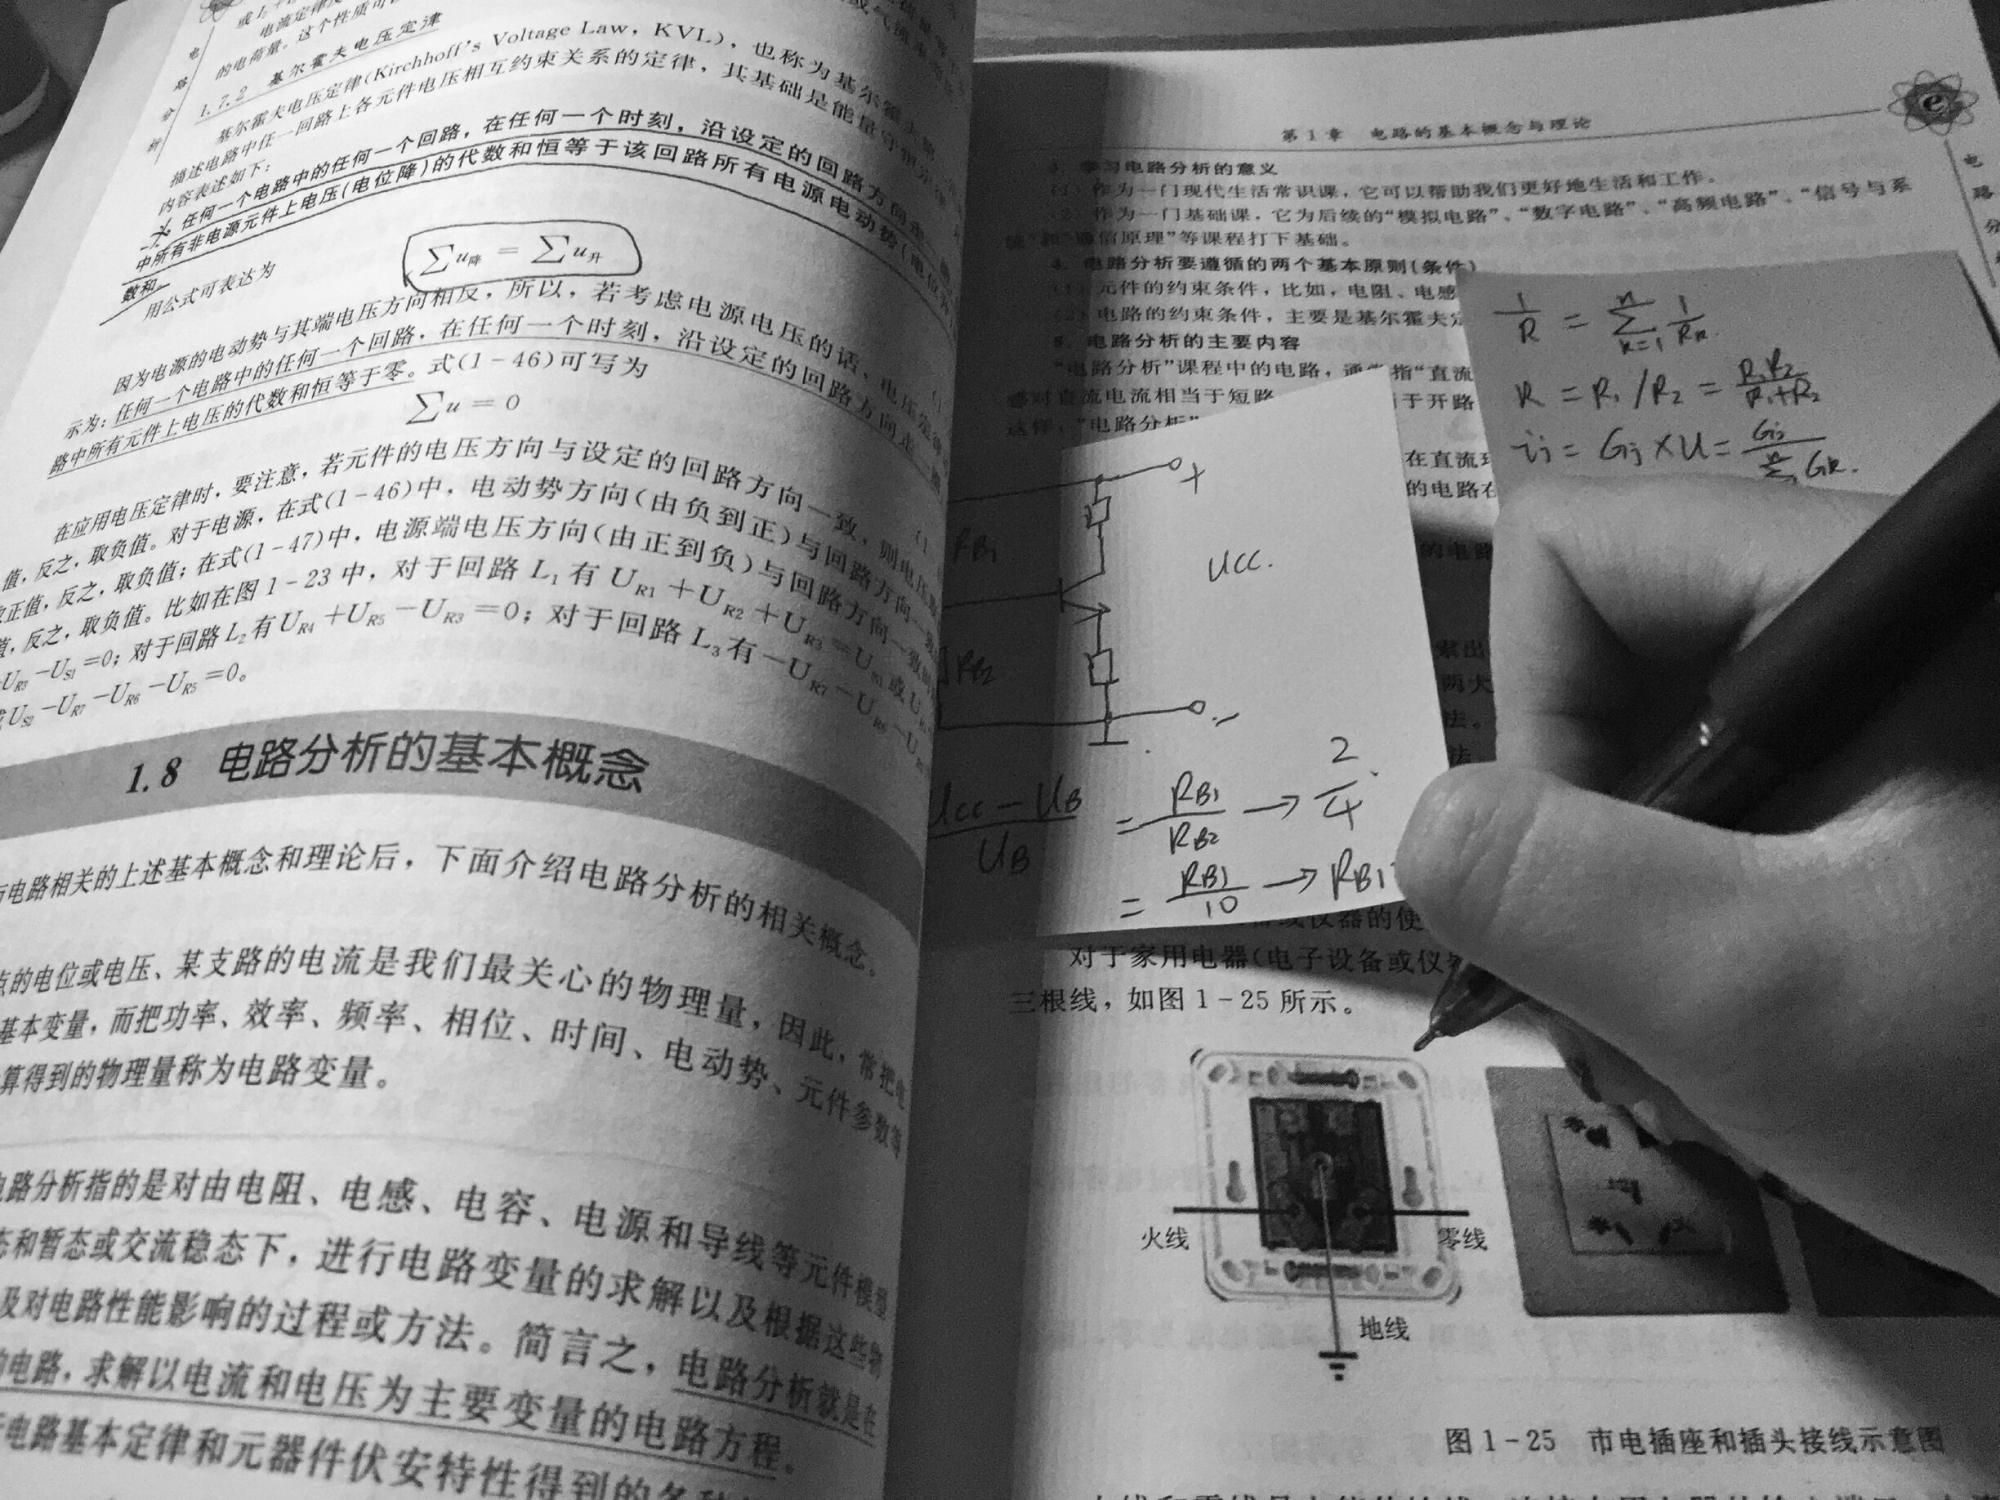 的电荷量。这个性质可
1.7.2 基尔霍夫电压定律
基尔霍夫电压定律(Kirchhoff's Voltage Law, KVL), 也称为基尔霍
描述电路中任一回路上各元件电压相互约束关系的定律, 其基础是能量守恒
内容表述如下:
任何一个电路中的任何一个回路, 在任何一个时刻, 沿设定的回路方向
中所有非电源元件上电压(电位降)的代数和恒等于该回路所有电源电动势(电位
数和
用公式可表达为
∑u降 = ∑u升
因为电源的电动势与其端电压方向相反, 所以, 若考虑电源电压的话, 电压定律
示为: 任何一个电路中的任何一个回路, 在任何一个时刻, 沿设定的回路方向
路中所有元件上电压的代数和恒等于零。式(1-46)可写为
∑u = 0
在应用电压定律时, 要注意, 若元件的电压方向与设定的回路方向一致, 则电压
值, 反之, 取负值。对于电源, 在式(1-46)中, 电动势方向(由负到正)与回路方向一致
正值, 反之, 取负值; 在式(1-47)中, 电源端电压方向(由正到负)与回路方向一致
值, 反之, 取负值。比如在图1-23中, 对于回路L1有UR1+UR2+UR3=US1或
UR3-US1=0; 对于回路L2有UR4+UR5-UR3=0; 对于回路L3有-UR7-UR6-
US2-UR7-UR6-UR5=0。
1.8 电路分析的基本概念
电路相关的上述基本概念和理论后, 下面介绍电路分析的相关概念。
点的电位或电压、某支路的电流是我们最关心的物理量, 因此, 常把
基本变量, 而把功率、效率、频率、相位、时间、电动势、元件参数等
算得到的物理量称为电路变量。
电路分析指的是对由电阻、电感、电容、电源和导线等元件模型
态和暂态或交流稳态下, 进行电路变量的求解以及根据这些物
及对电路性能影响的过程或方法。简言之, 电路分析就是在
的电路, 求解以电流和电压为主要变量的电路方程。
电路基本定律和元器件伏安特性得到的
电路分析
第1章 电路的基本概念与理论
e
电路分
3. 学习电路分析的意义
(1) 作为一门现代生活常识课, 它可以帮助我们更好地生活和工作。
(2) 作为一门基础课, 它为后续的“模拟电路”、“数字电路”、“高频电路”、“信号与系
统”和“通信原理”等课程打下基础。
4. 电路分析要遵循的两个基本原则(条件)
(1) 元件的约束条件, 比如, 电阻、电感
(2) 电路的约束条件, 主要是基尔霍夫定
5. 电路分析的主要内容
“电路分析”课程中的电路, 通常指“直流
对直流电流相当于短路
于开路
这样, “电路分析”
在直流
的电路在
的电路
两大
法。
1/R = ∑ k=1 n 1/Rk.
R = R1/R2 = R1R2/R1+R2
ij = Gj×U = Gj/∑Gk.
+
RB1
UCC.
RB2
-
UCC-UB/UB = RB1/RB2 → 2/4
= RB1/10 → RB1
或仪器的使
对于家用电器(电子设备或仪
三根线, 如图1-25所示。
火线
零线
地线
图1-25 市电插座和插头接线示意图